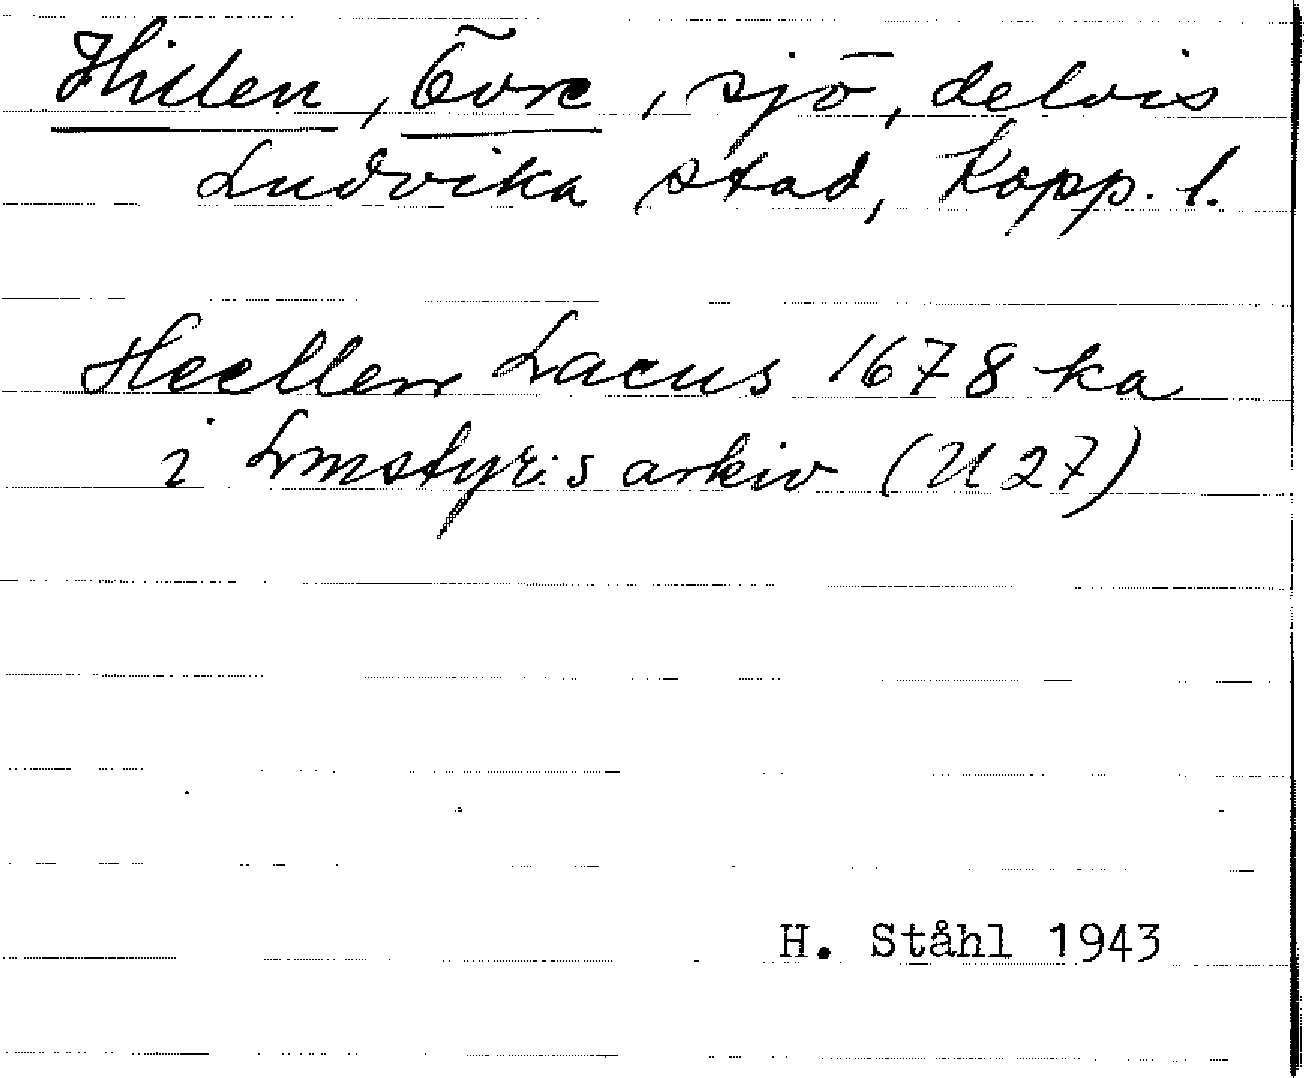 Hillen, Övre, sjö, delvis
Ludvika stad, Kopp. l.
Heellen Lacus 1678 ka
i Lmstyr:s arkiv (U 27)
H. Ståhl 1943